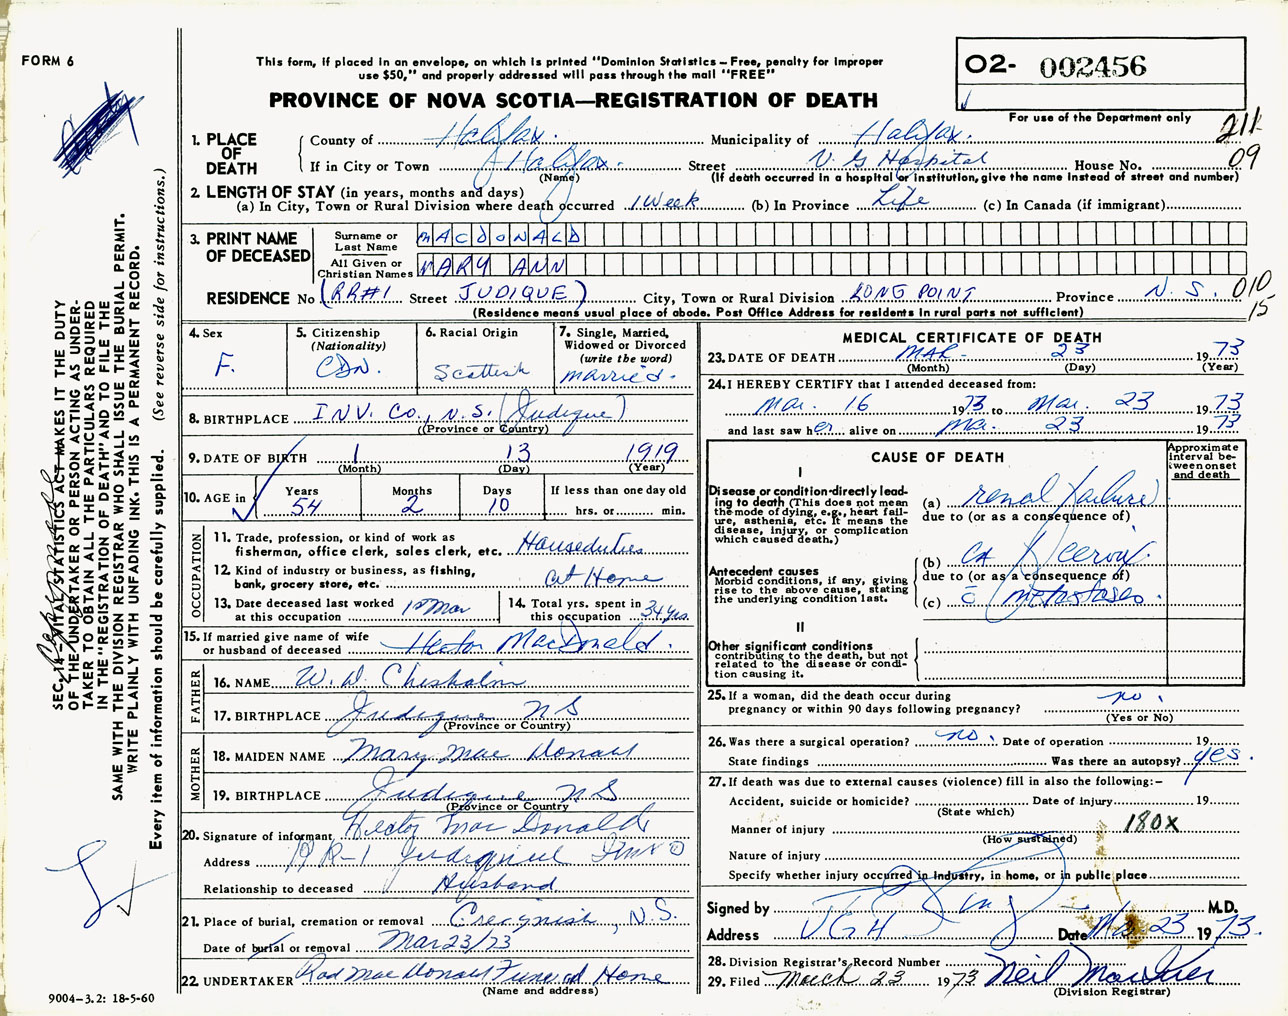 FORM 6
This form, if placed in an envelope, on which is printed "Dominion Statistics – Free, penalty for improper
use $50," and properly addressed will pass through the mail "FREE"
PROVINCE OF NOVA SCOTIA—REGISTRATION OF DEATH
02- 002456
For use of the Department only
211
09
1. PLACE OF DEATH
County of Halifax. Municipality of Halifax.
If in City or Town Halifax. Street V. G Hospital House No.
(Name) (If death occurred in a hospital or institution, give the name instead of street and number)
2. LENGTH OF STAY (in years, months and days)
(a) In City, Town or Rural Division where death occurred 1 Week (b) In Province Life (c) In Canada (if immigrant)
3. PRINT NAME OF DECEASED
Surname or Last Name MACDONALD
All Given or Christian Names MARY ANN
RESIDENCE No (RR#1 Street JUDIQUE) City, Town or Rural Division LONG POINT Province N. S. 010
15
(Residence means usual place of abode. Post Office Address for residents in rural parts not sufficient)
4. Sex
F.
5. Citizenship
(Nationality)
CDN.
6. Racial Origin
Scottish
7. Single, Married,
Widowed or Divorced
(write the word)
married.
8. BIRTHPLACE INV. CO., N.S. (Judique)
(Province or Country)
9. DATE OF BIRTH 1 13 1919
(Month) (Day) (Year)
10. AGE in
Years Months Days If less than one day old
54 2 10 hrs. or min.
OCCUPATION
11. Trade, profession, or kind of work as
fisherman, office clerk, sales clerk, etc. Houseduties
12. Kind of industry or business, as fishing,
bank, grocery store, etc. at Home
13. Date deceased last worked
at this occupation 15 Mar
14. Total yrs. spent in
this occupation 34 yrs.
15. If married give name of wife
or husband of deceased Hector MacDonald.
FATHER
16. NAME W. D. Chisholm
17. BIRTHPLACE Judique N S
(Province or Country)
MOTHER
18. MAIDEN NAME Mary Mac Donald
19. BIRTHPLACE Judique N S
(Province or Country)
20. Signature of informant Hector Mac Donald
Address
Relationship to deceased Husband
21. Place of burial, cremation or removal Creignish, N.S.
Date of burial or removal Mar 23/73
22. UNDERTAKER Rod Mac Donald Funeral Home
(Name and address)
MEDICAL CERTIFICATE OF DEATH
23. DATE OF DEATH MAR. 23 1973
(Month) (Day) (Year)
24. I HEREBY CERTIFY that I attended deceased from:
Mar. 16 1973 to Mar. 23 1973
and last saw her alive on Mar. 23 1973
CAUSE OF DEATH
Approximate interval between onset and death
I
Disease or condition directly leading to death (This does not
mean the mode of dying, e.g., heart failure, asthenia, etc. It means the
disease, injury, or complication
which caused death.)
(a) renal failure
due to (or as a consequence of)
Antecedent causes
Morbid conditions, if any, giving
rise to the above cause, stating
the underlying condition last.
(b) CA Cervix.
due to (or as a consequence of)
(c) c̄ metastases
II
Other significant conditions
contributing to the death, but not
related to the disease or condition causing it.
25. If a woman, did the death occur during
pregnancy or within 90 days following pregnancy? no.
(Yes or No)
26. Was there a surgical operation? no. Date of operation 19
State findings Was there an autopsy? yes.
27. If death was due to external causes (violence) fill in also the following:–
Accident, suicide or homicide? Date of injury 19
(State which)
Manner of injury 180X
(How sustained)
Nature of injury
Specify whether injury occurred in industry, in home, or in public place
Signed by M.D.
Address V G H Date Mar 23 1973.
28. Division Registrar's Record Number
29. Filed March 23 1973 Neil
(Division Registrar)
SEC. 14—VITAL STATISTICS ACT MAKES IT THE DUTY
OF THE UNDERTAKER OR PERSON ACTING AS UNDER-
TAKER TO OBTAIN ALL THE PARTICULARS REQUIRED
IN THE "REGISTRATION OF DEATH" AND TO FILE THE
SAME WITH THE DIVISION REGISTRAR WHO SHALL ISSUE THE BURIAL PERMIT.
WRITE PLAINLY WITH UNFADING INK. THIS IS A PERMANENT RECORD.
Every item of information should be carefully supplied. (See reverse side for instructions.)
9004-3.2: 18-5-60